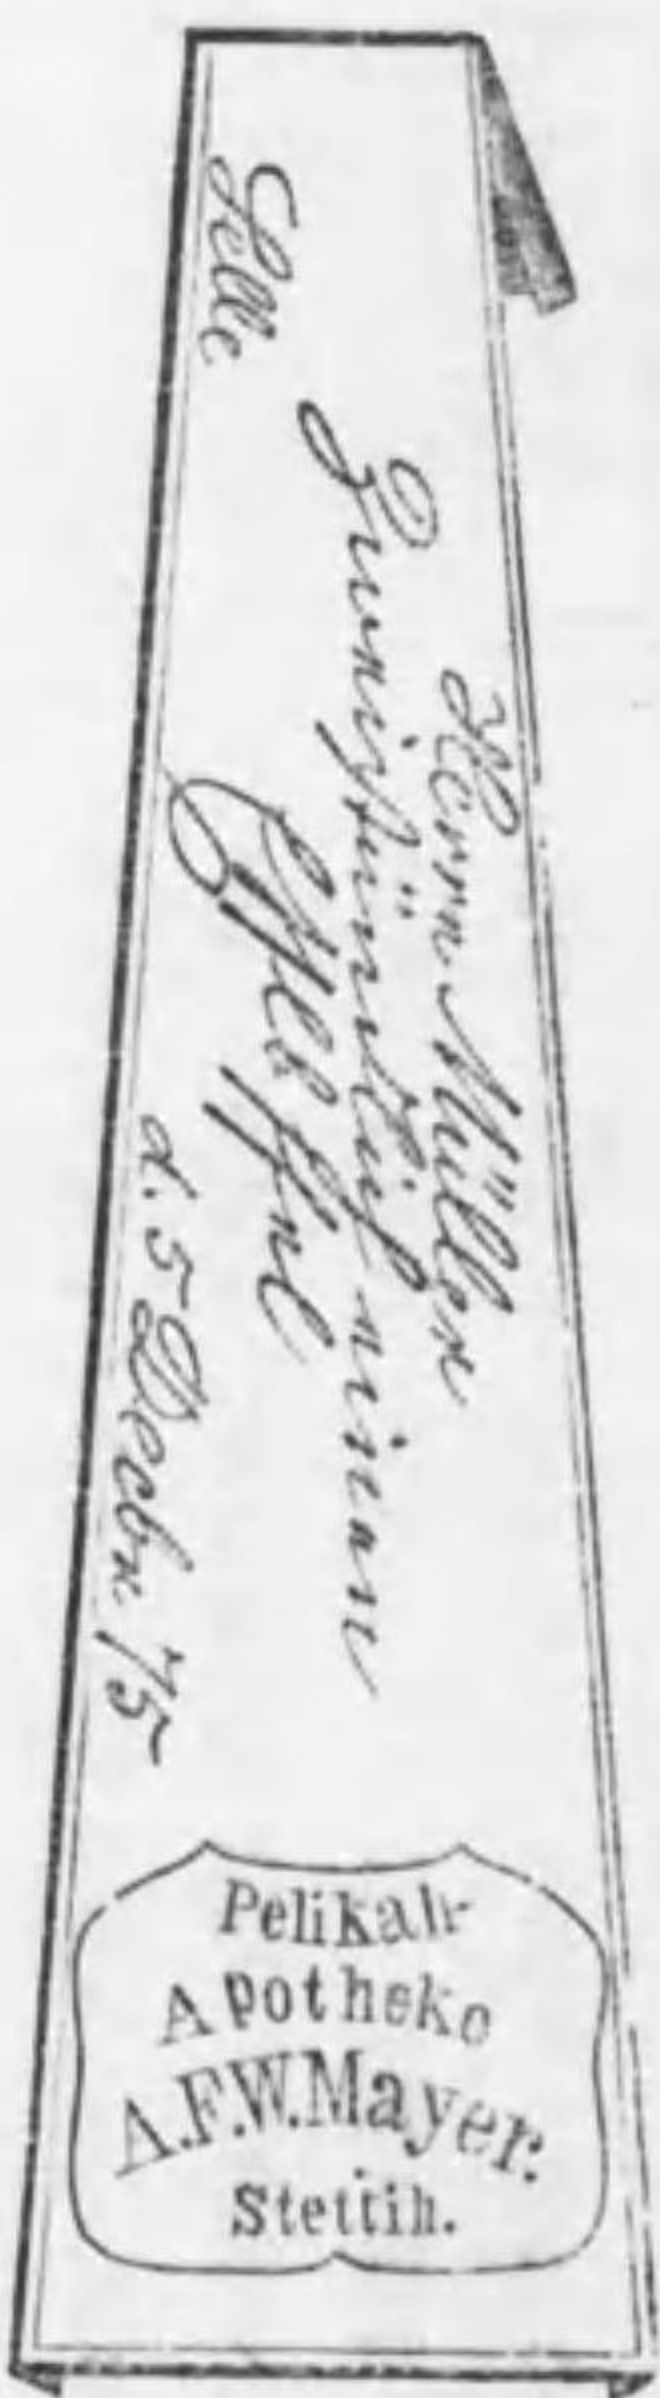 Herrn Müller
Zweistündlich einen
Eßlöffel
Selle
d. 5 Decbr. 75
Pelikan-
Apotheke
A.F.W.Mayer.
Stettin.